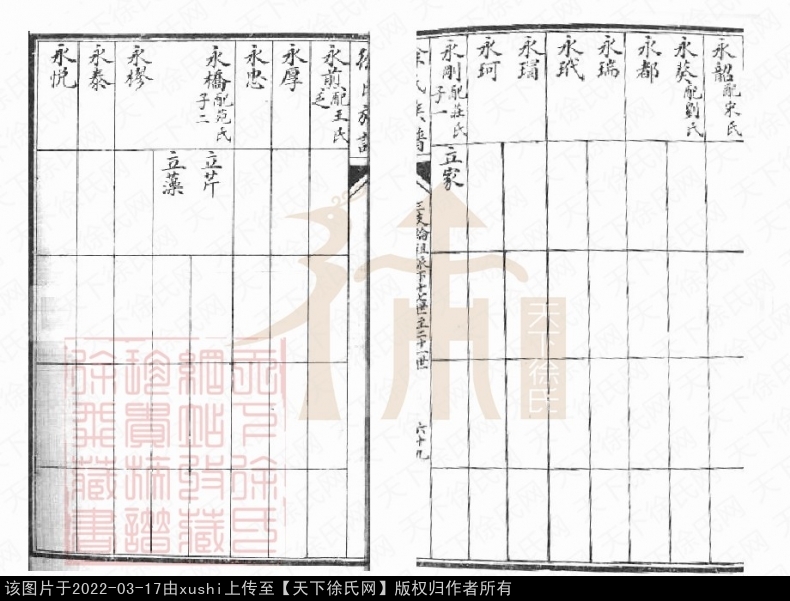 永韶配宋氏
永葵配劉氏
永都
永瑞
永玳
永璛
永珂
永剛配莊氏子一
立家
徐氏族譜
三支翰祖派下十七世至二十一世
六十九
徐氏族譜
永煎配王氏
永厚
永忠
永橋配范氏子二
立芹
立藻
永樛
永泰
永悅
天下徐氏
天下徐氏網站收藏珍貴族譜徐氏藏書
该图片于2022-03-17由xushi上传至【天下徐氏网】版权归作者所有